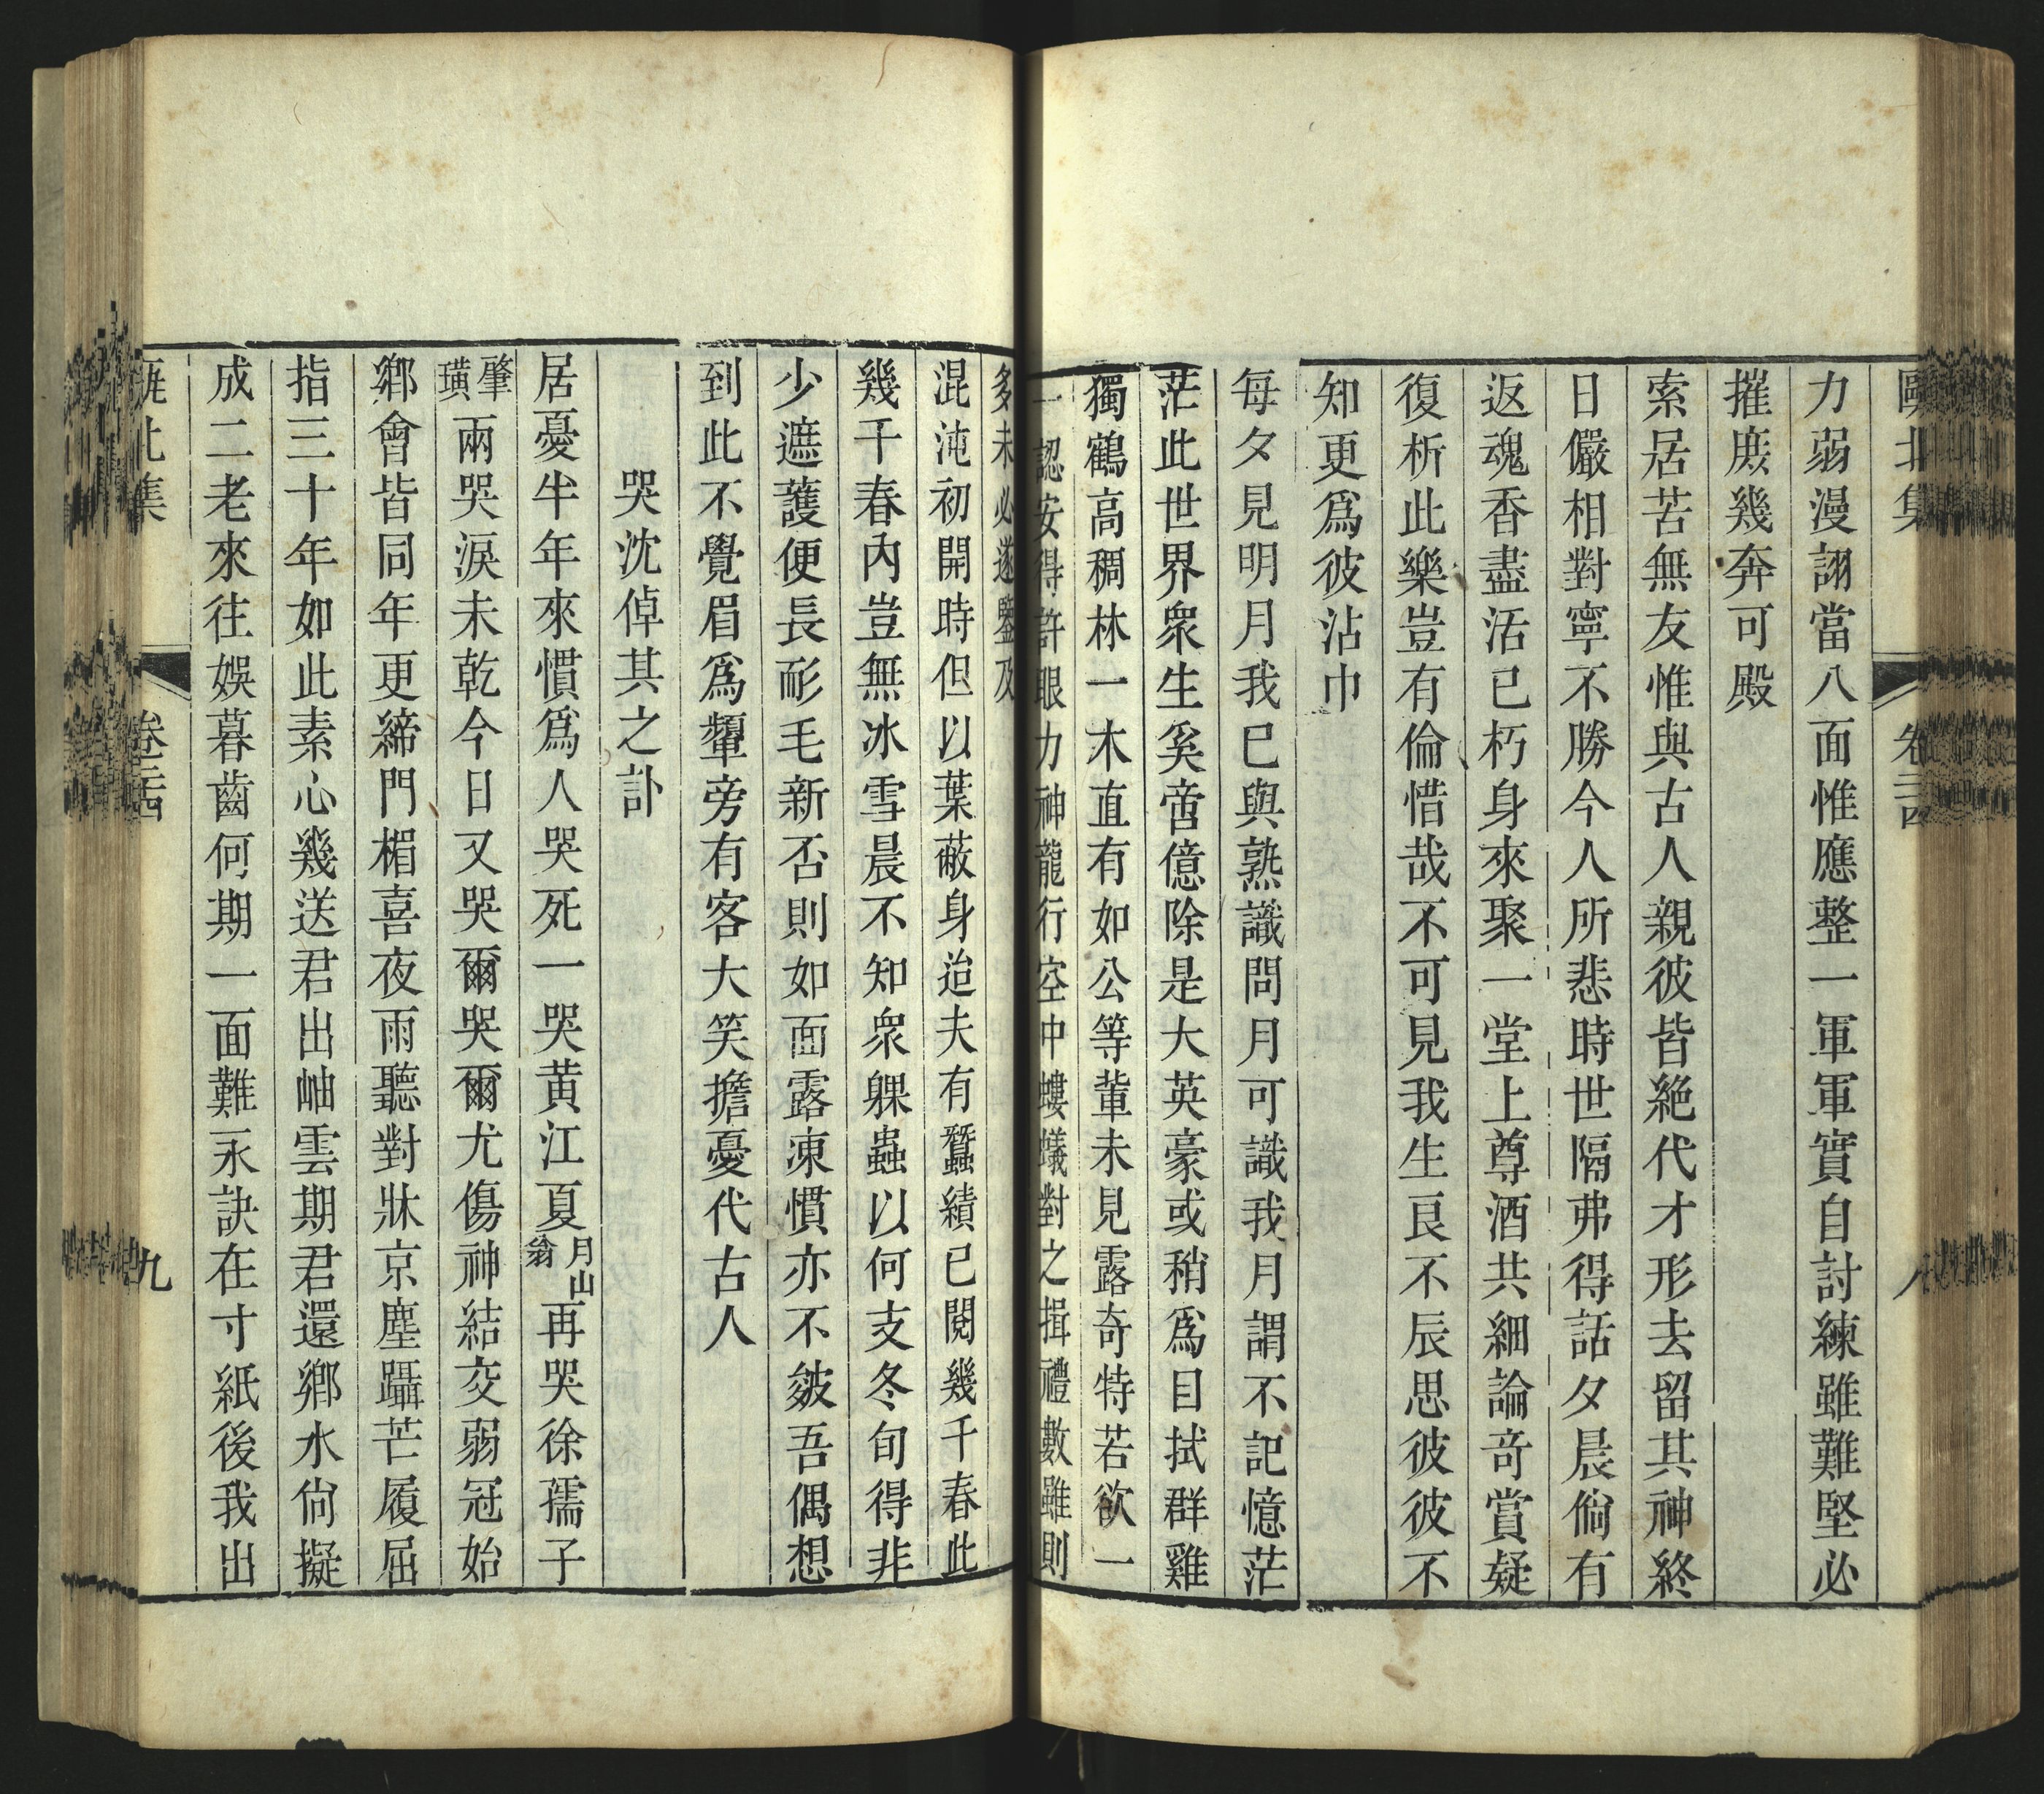 甌北集 卷三四 八
力弱漫詡當八面惟應整一軍軍實自討練雖難堅必
摧庶幾奔可殿
索居苦無友惟與古人親彼皆絶代才形去留其神終
日儼相對寧不勝今人所悲時世隔弗得話夕晨倘有
返魂香盡活已朽身來聚一堂上尊酒共細論竒賞疑
復析此樂豈有倫惜哉不可見我生良不辰思彼彼不
知更爲彼沾巾
每夕見明月我已與熟識問月可識我月謂不記憶茫
茫此世界衆生奚啻億除是大英豪或稍爲目拭群雞
獨鶴高稠林一木直有如公等輩未見露奇特若欲一
一認安得許眼力神龍行空中螻蟻對之揖禮數雖則
多未必遂鑒及
混沌初開時但以葉蔽身迨夫有蠶績已閱幾千春此
幾千春內豈無冰雪晨不知衆躶蟲以何支冬旬得非
少遮䕶便長耏毛新否則如面露凍慣亦不皴吾偶想
到此不覺眉爲顰旁有客大笑擔憂代古人
哭沈倬其之訃
居憂半年來慣爲人哭死一哭黄江夏月山翁再哭徐孺子
肇璜兩哭淚未乾今日又哭爾哭爾尤傷神結交弱冠始
鄉會皆同年更締門楣喜夜雨聽對牀京塵躡芒履屈
指三十年如此素心幾送君出岫雲期君還鄉水尙擬
成二老來往娛暮齒何期一面難永訣在寸紙後我出
北集 卷 九